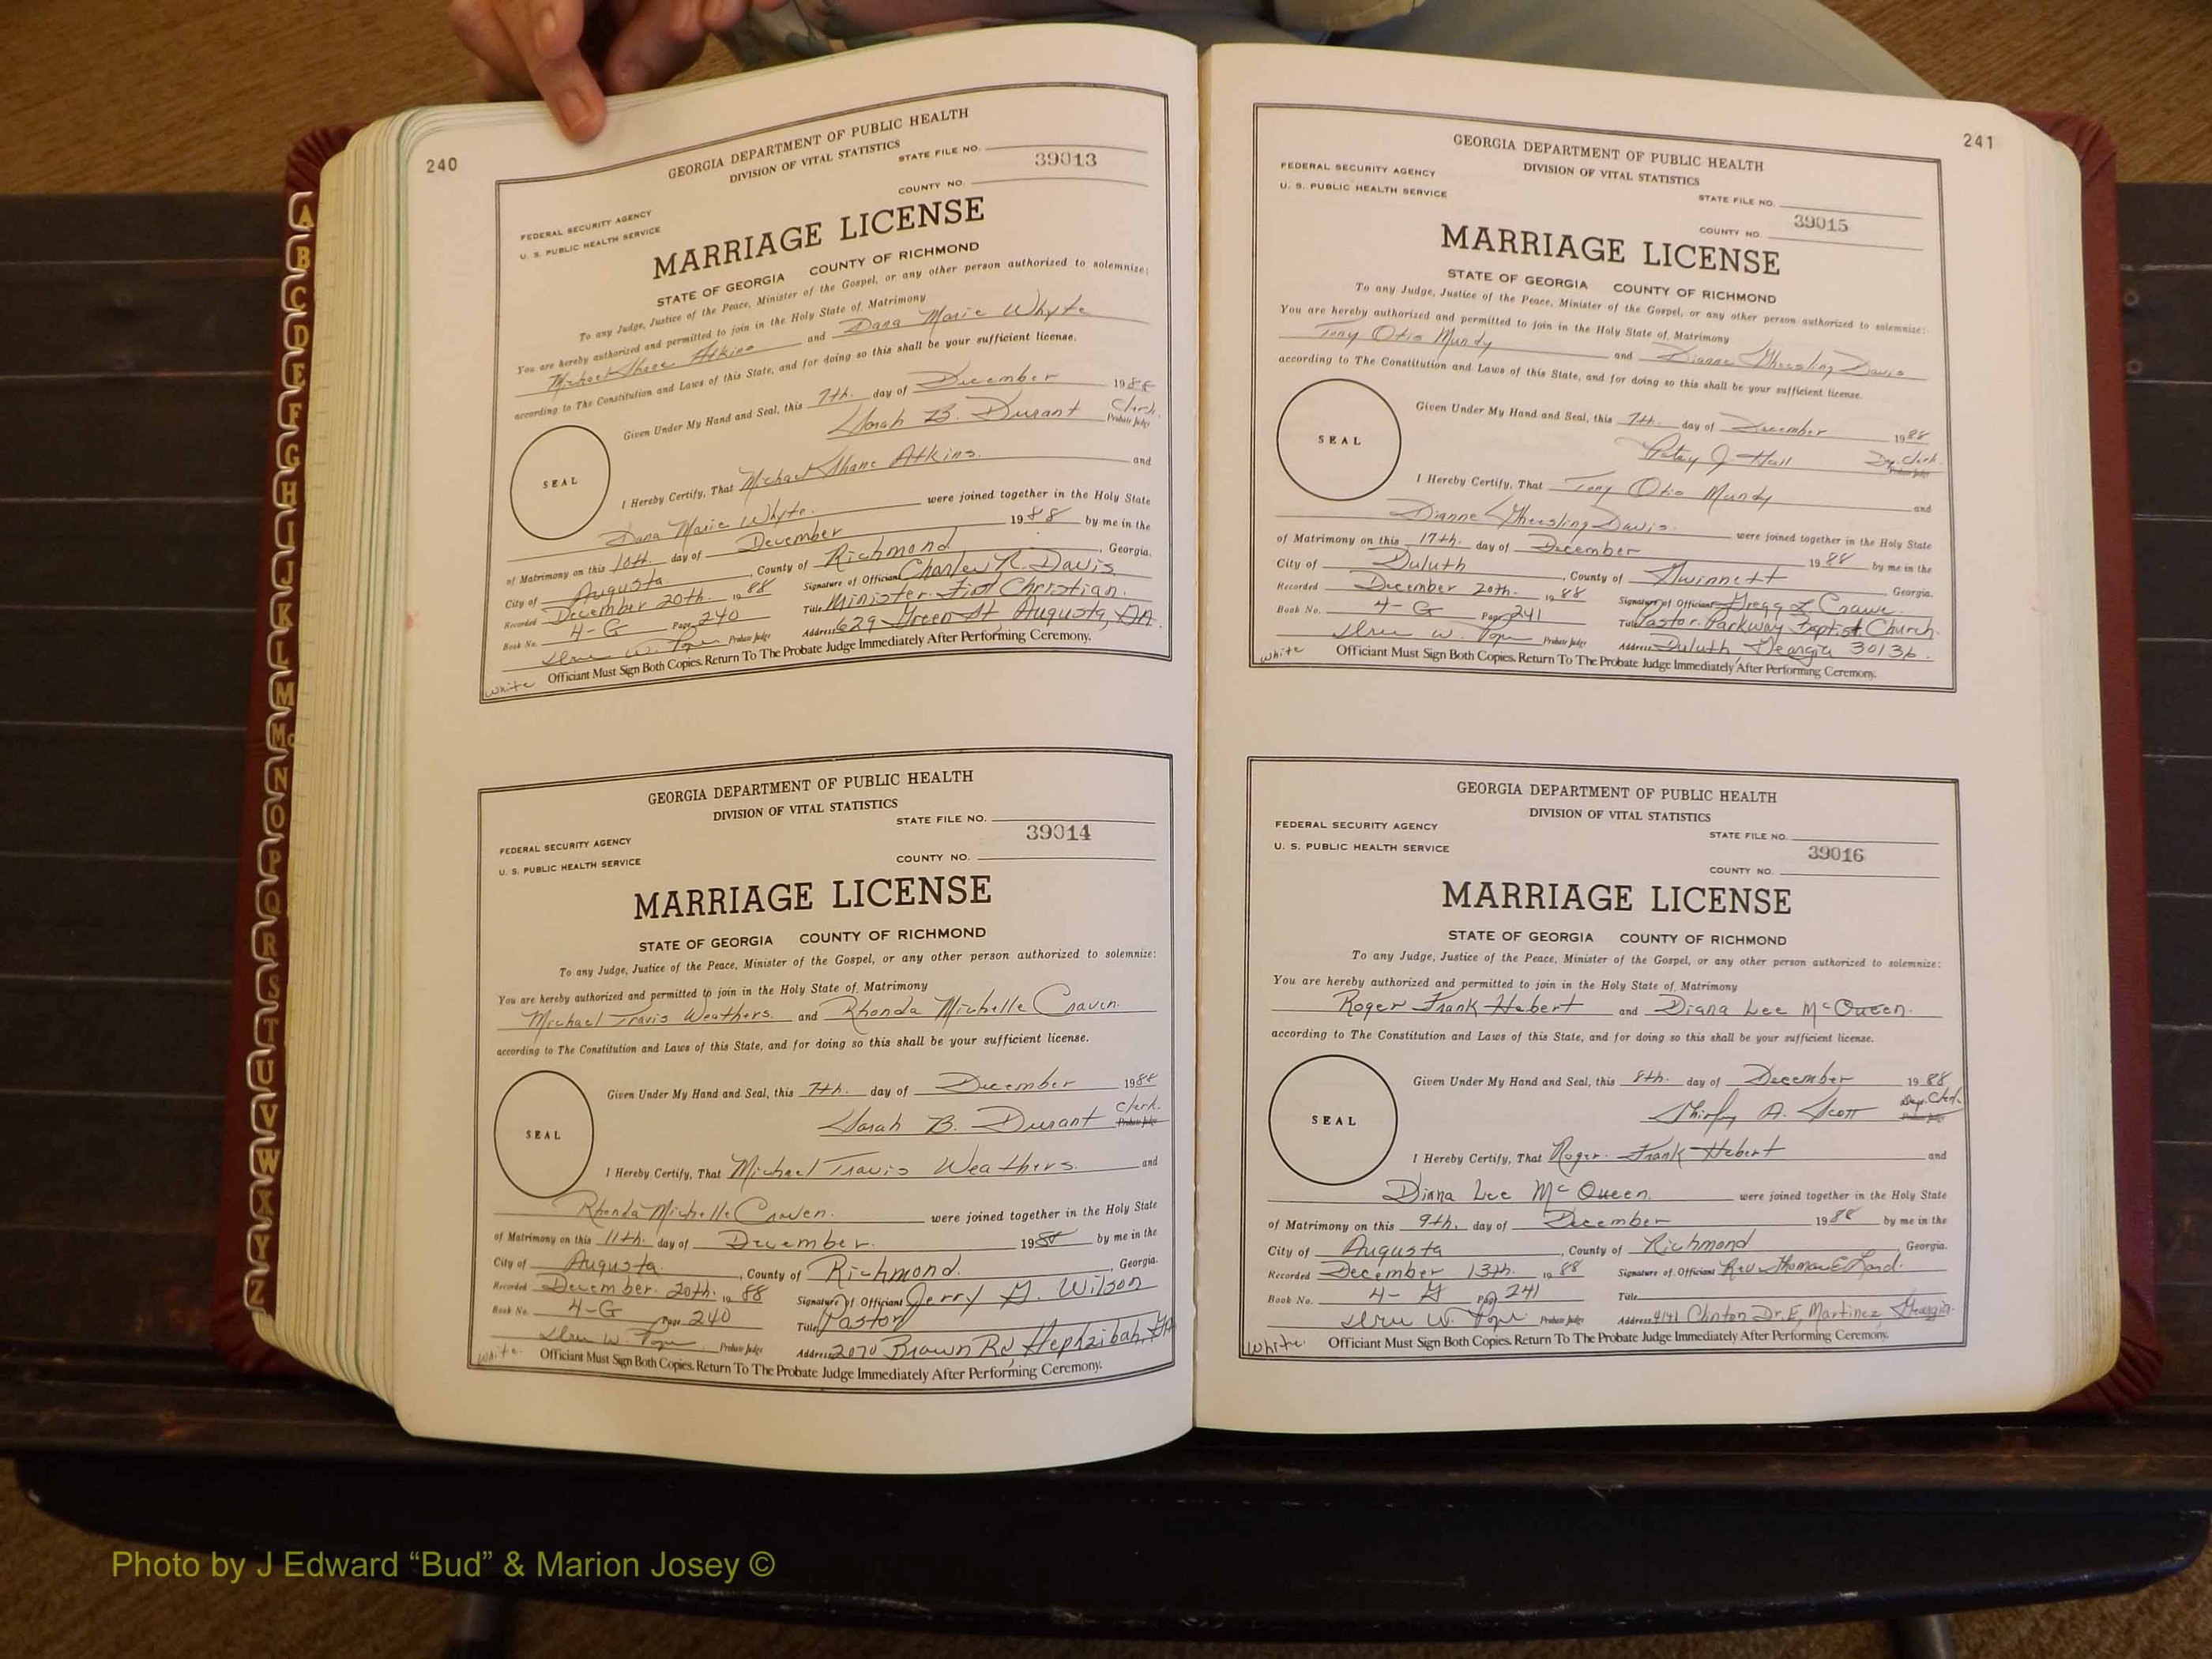 240
GEORGIA DEPARTMENT OF PUBLIC HEALTH
DIVISION OF VITAL STATISTICS
STATE FILE NO.
39013
COUNTY NO.
FEDERAL SECURITY AGENCY
U. S. PUBLIC HEALTH SERVICE
MARRIAGE LICENSE
STATE OF GEORGIA COUNTY OF RICHMOND
To any Judge, Justice of the Peace, Minister of the Gospel, or any other person authorized to solemnize:
You are hereby authorized and permitted to join in the Holy State of Matrimony
Michael Shane Atkins and Dana Marie Whyte
according to The Constitution and Laws of this State, and for doing so this shall be your sufficient license.
Given Under My Hand and Seal, this 7th. day of December 1988
Sarah B. Durant Clerk.
Probate Judge
SEAL
I Hereby Certify, That Michael Shane Atkins. and
Dana Marie Whyte. were joined together in the Holy State
of Matrimony on this 10th. day of December 1988 by me in the
City of Augusta. , County of Richmond , Georgia.
Recorded December 20th. 1988 Signature of Officiant Charles R. Davis
Book No. 4-G Page 240 Title Minister. First Christian.
Probate Judge Address 629 Green St Augusta, GA.
White Officiant Must Sign Both Copies. Return To The Probate Judge Immediately After Performing Ceremony.
GEORGIA DEPARTMENT OF PUBLIC HEALTH
DIVISION OF VITAL STATISTICS
STATE FILE NO.
39014
FEDERAL SECURITY AGENCY
U. S. PUBLIC HEALTH SERVICE
COUNTY NO.
MARRIAGE LICENSE
STATE OF GEORGIA COUNTY OF RICHMOND
To any Judge, Justice of the Peace, Minister of the Gospel, or any other person authorized to solemnize:
You are hereby authorized and permitted to join in the Holy State of Matrimony
Michael Travis Weathers. and Rhonda Michelle Craven.
according to The Constitution and Laws of this State, and for doing so this shall be your sufficient license.
Given Under My Hand and Seal, this 7th. day of December 1988
Sarah B. Durant Clerk.
Probate Judge
SEAL
I Hereby Certify, That Michael Travis Weathers. and
Rhonda Michelle Craven. were joined together in the Holy State
of Matrimony on this 11th. day of December. 1988 by me in the
City of Augusta. , County of Richmond. , Georgia.
Recorded December. 20th. 1988 Signature of Officiant Jerry G. Wilson
Book No. 4-G Page 240 Title Pastor
Probate Judge Address 2070 Brown Rd, Hephzibah, GA
White. Officiant Must Sign Both Copies. Return To The Probate Judge Immediately After Performing Ceremony.
241
GEORGIA DEPARTMENT OF PUBLIC HEALTH
DIVISION OF VITAL STATISTICS
FEDERAL SECURITY AGENCY
U. S. PUBLIC HEALTH SERVICE
STATE FILE NO.
39015
COUNTY NO.
MARRIAGE LICENSE
STATE OF GEORGIA COUNTY OF RICHMOND
To any Judge, Justice of the Peace, Minister of the Gospel, or any other person authorized to solemnize:
You are hereby authorized and permitted to join in the Holy State of Matrimony
Tony Otis Mundy and Dianne Gheesling Davis
according to The Constitution and Laws of this State, and for doing so this shall be your sufficient license.
Given Under My Hand and Seal, this 7th. day of December 1988
Patsy J. Hall Dep. Clerk.
Probate Judge
SEAL
I Hereby Certify, That Tony Otis Mundy and
Dianne Gheesling Davis. were joined together in the Holy State
of Matrimony on this 17th. day of December 1988 by me in the
City of Duluth , County of Gwinnett Georgia.
Recorded December 20th. 1988 Signature of Officiant Gregg L. Crawe.
Book No. 4-G Page 241 Title Pastor. Parkway Baptist Church.
Probate Judge Address Duluth Georgia 30136.
White Officiant Must Sign Both Copies. Return To The Probate Judge Immediately After Performing Ceremony.
GEORGIA DEPARTMENT OF PUBLIC HEALTH
DIVISION OF VITAL STATISTICS
FEDERAL SECURITY AGENCY
U. S. PUBLIC HEALTH SERVICE
STATE FILE NO.
39016
COUNTY NO.
MARRIAGE LICENSE
STATE OF GEORGIA COUNTY OF RICHMOND
To any Judge, Justice of the Peace, Minister of the Gospel, or any other person authorized to solemnize:
You are hereby authorized and permitted to join in the Holy State of Matrimony
Roger Frank Hebert and Diana Lee McQueen.
according to The Constitution and Laws of this State, and for doing so this shall be your sufficient license.
Given Under My Hand and Seal, this 8th. day of December 1988
Shirley A. Scott Dep. Clerk
Probate Judge
SEAL
I Hereby Certify, That Roger. Frank Hebert and
Diana Lee McQueen. were joined together in the Holy State
of Matrimony on this 9th. day of December 1988 by me in the
City of Augusta , County of Richmond Georgia.
Recorded December 13th. 1988 Signature of Officiant Rev Thomas E Lord.
Book No. 4-G Page 241 Title
Probate Judge Address 4141 Clinton Dr. E, Martinez, Georgia.
White. Officiant Must Sign Both Copies. Return To The Probate Judge Immediately After Performing Ceremony.
A
B
C
D
E
F
G
H
I
J
K
L
M
Mc
N
O
P
Q
R
S
T
U
V
W
X
Y
Z
Photo by J Edward “Bud” & Marion Josey ©